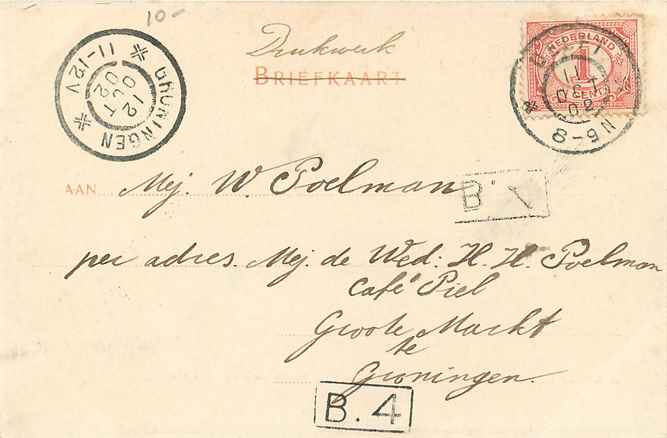 10-
Drukwerk
BRIEFKAART
NEDERLAND
1
CENT
11 OCT 02
8-9 N
GRONINGEN
12 OCT 02
11-12V
AAN Mej. W. Poelman
B.
per adres. Mej. de Wed: H. H. Poelman
Café Piel
Groote Markt
te
Groningen.
B.4